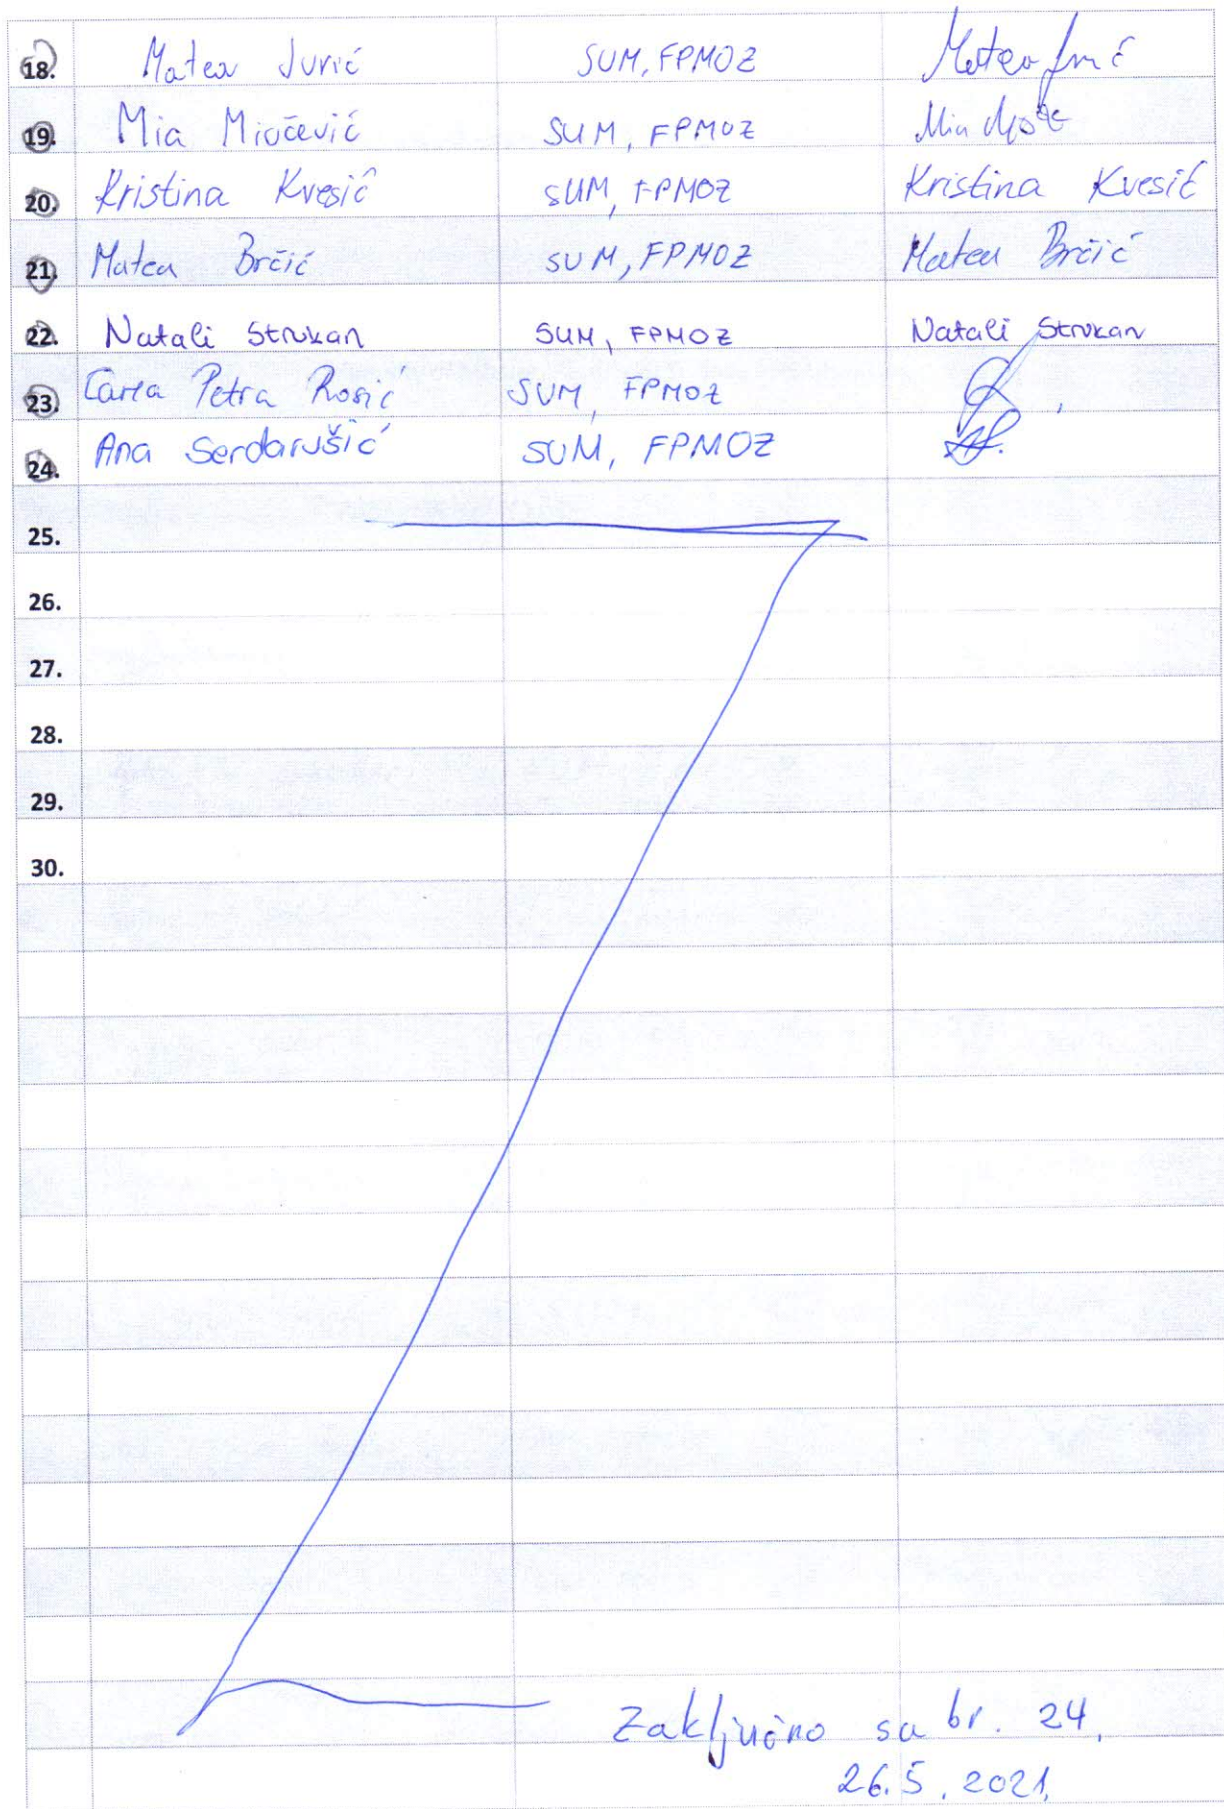 18. Matea Jurić SUM, FPMOZ Matea
19. Mia Miočević SUM, FPMOZ Mia
20. Kristina Kvesić SUM, FPMOZ Kristina Kvesić
21. Matea Brčić SUM, FPMOZ Matea Brčić
22. Natali Strukan SUM, FPMOZ Natali Strukan
23. Carla Petra Rosić SUM, FPMOZ
24. Ana Serdarušić SUM, FPMOZ
25.
26.
27.
28.
29.
30.
Zaključno sa br. 24.
26.5.2021.